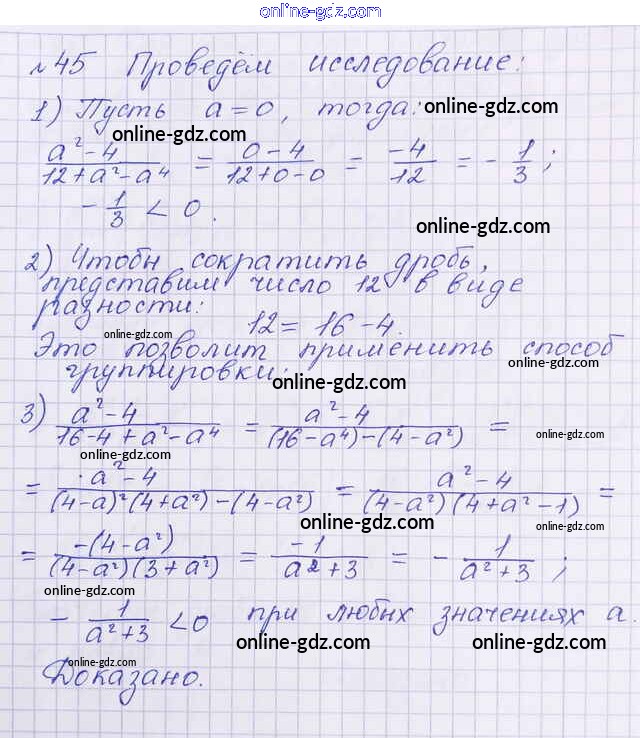 online-gdz.com
№45 Проведём исследование:
1) Пусть a=0, тогда:
online-gdz.com
online-gdz.com
(a²-4)/(12+a²-a⁴) = (0-4)/(12+0-0) = -4/12 = -1/3;
-1/3 < 0.
online-gdz.com
2) Чтобы сократить дробь,
представим число 12 в виде
разности:
12 = 16-4.
online-gdz.com
Это позволит применить способ
online-gdz.com
группировки:
online-gdz.com
3) (a²-4)/(16-4+a²-a⁴) = (a²-4)/((16-a⁴)-(4-a²)) =
online-gdz.com
= (a²-4)/((4-a)²(4+a²)-(4-a²)) = (a²-4)/((4-a²)(4+a²-1)) =
online-gdz.com
online-gdz.com
online-gdz.com
= -(4-a²)/((4-a²)(3+a²)) = -1/(a²+3) = -1/(a²+3);
-1/(a²+3) < 0 при любых значениях a.
online-gdz.com
online-gdz.com
online-gdz.com
Доказано.